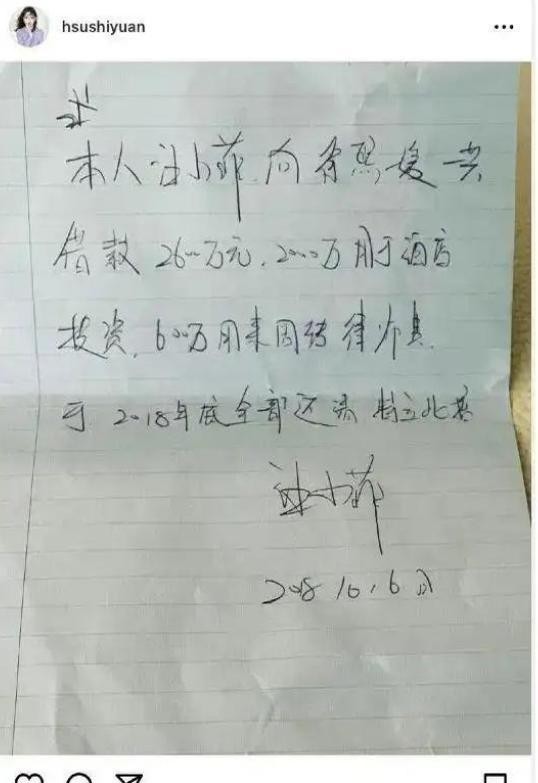 hsushiyuan
本人汪小菲向徐熙媛共
借款2600万元.2000万用于酒店
投资,600万用来周转律师费.
于2018年底全部还清 特立此据
汪小菲
2018 10.6